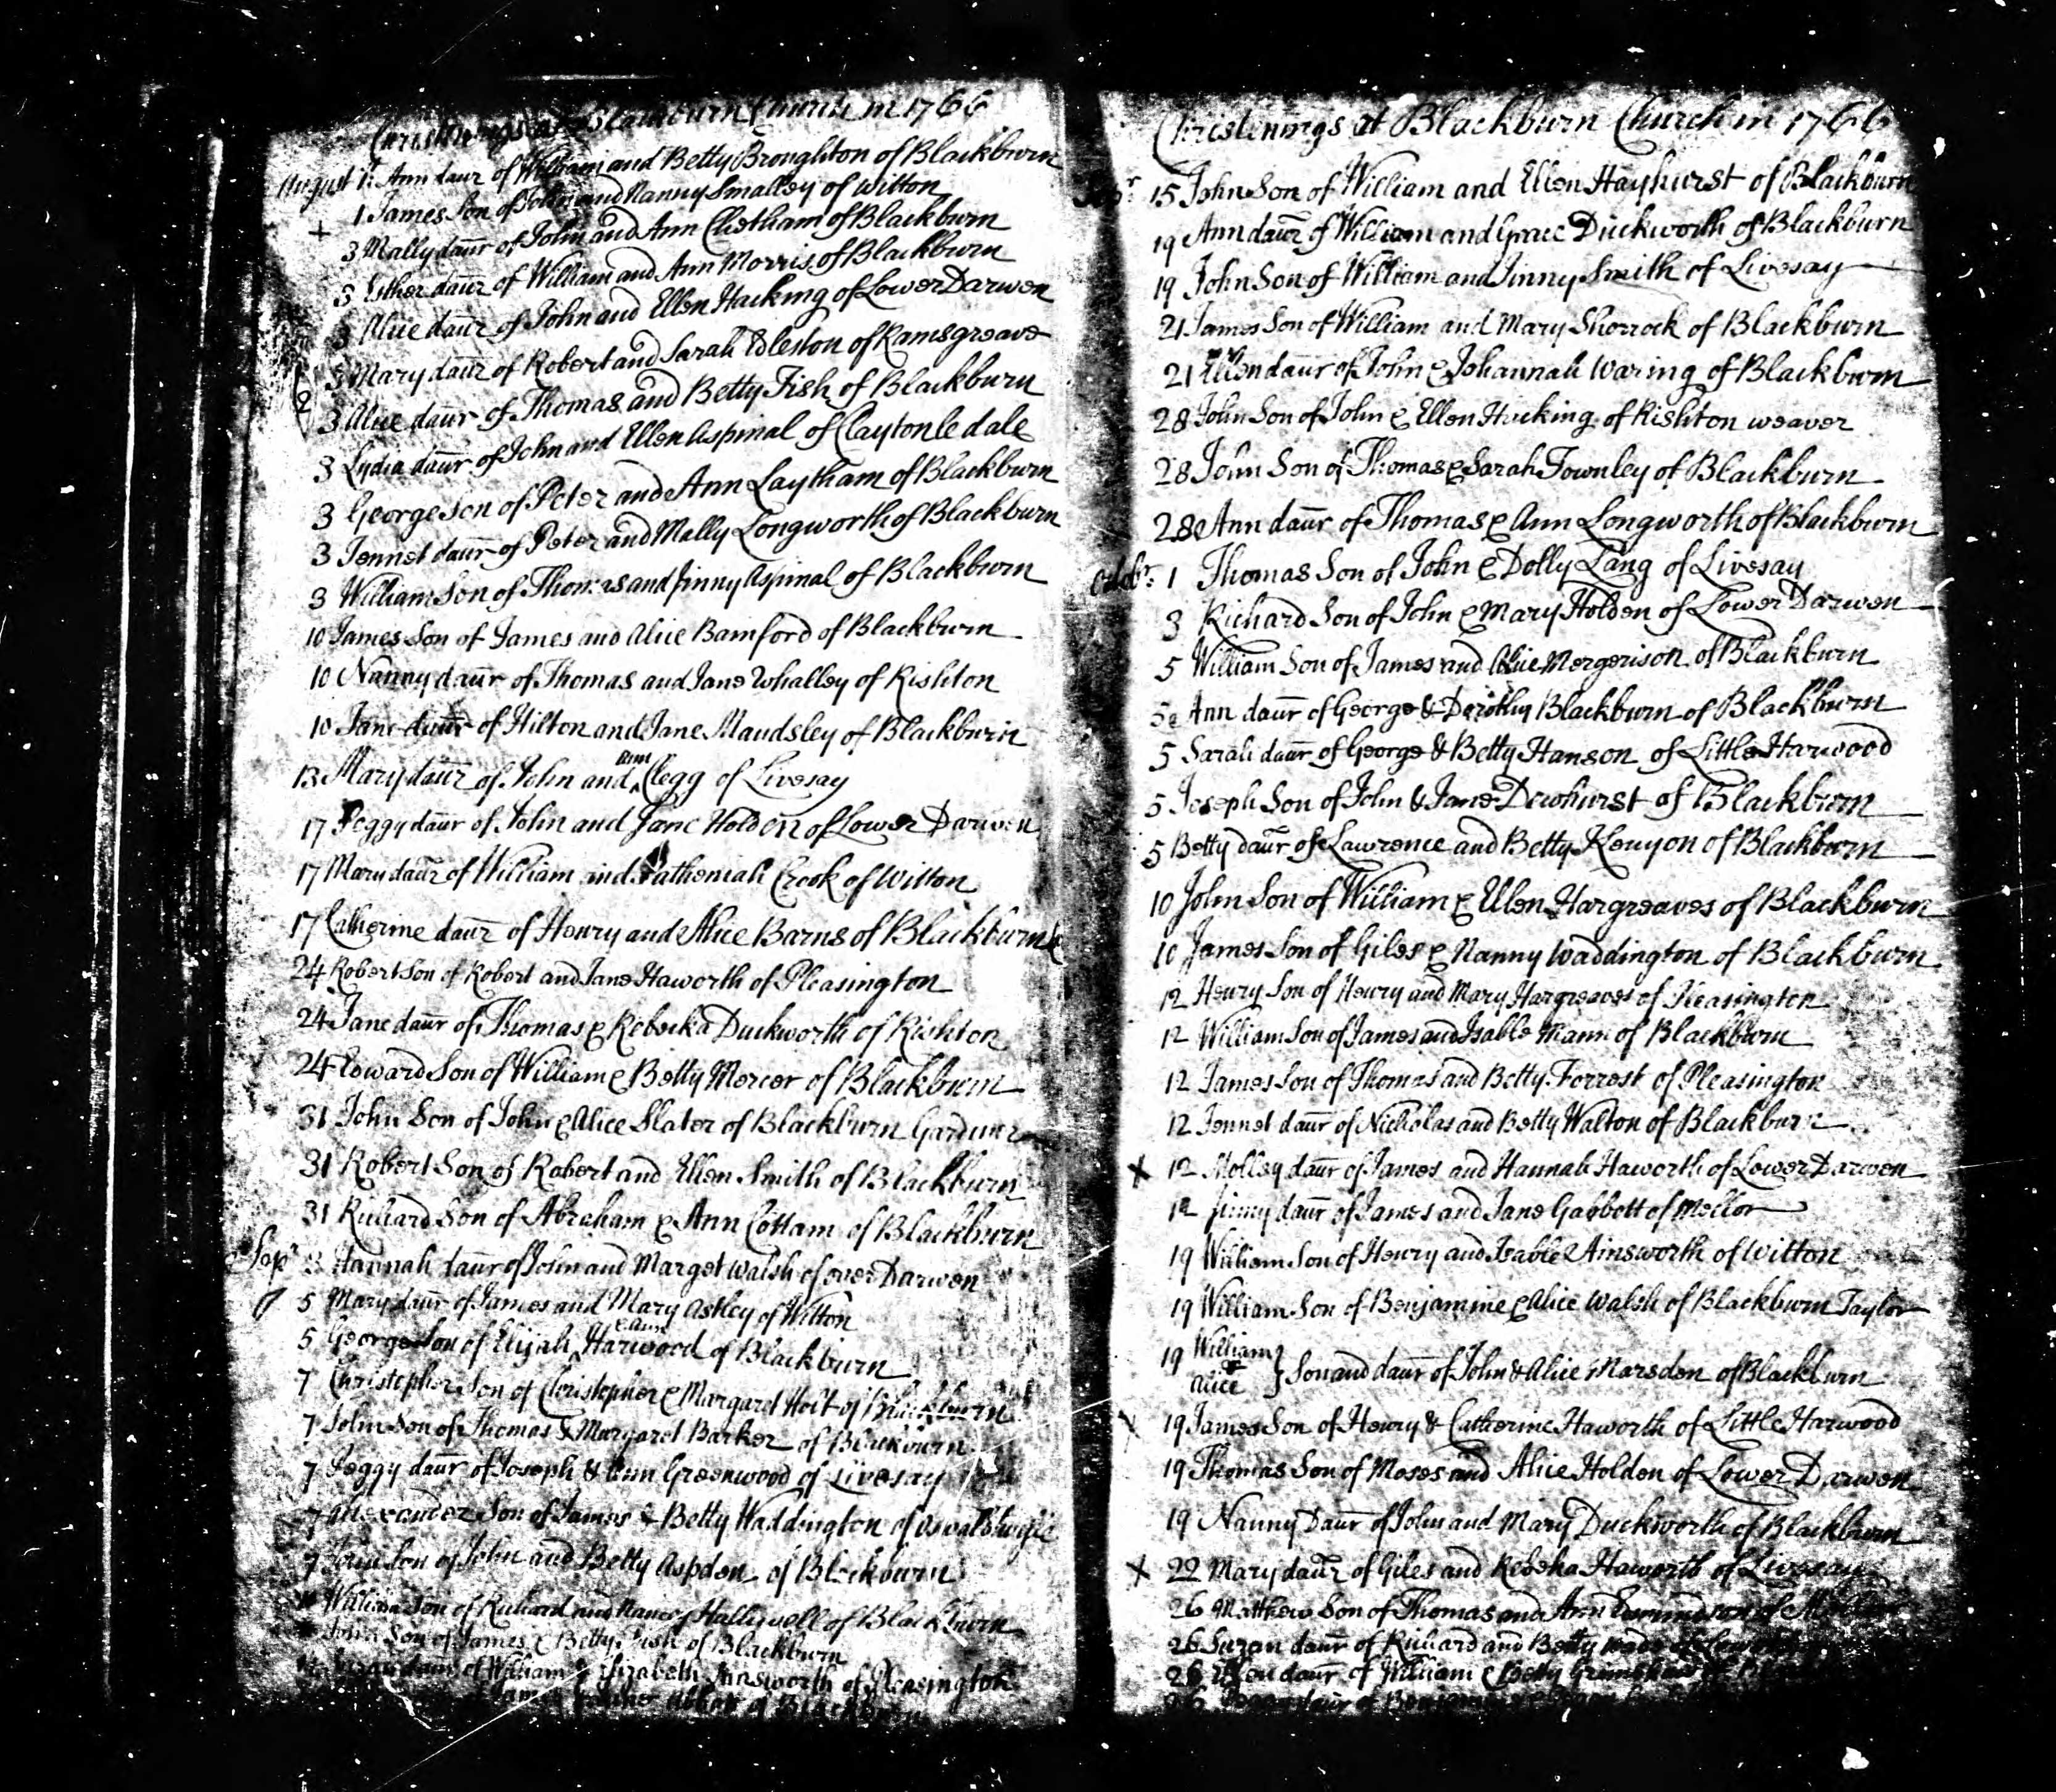 Christnings at Blackburn Church in 1766
August 1: Ann daur of William and Betty Broughton of Blackburn
+ 1 James Son of John and Nanny Smalley of Witton
3 Mally daur of John and Ann Chetham of Blackburn
3 Esther daur of William and Ann Morris of Blackburn
3 Alice daur of John and Ellen Hacking of Lower Darwen
3 Mary daur of Robert and Sarah Edleston of Ramsgreave
3 Alice daur of Thomas and Betty Fish of Blackburn
3 Lydia daur of John and Ellen Aspinal of Clayton le dale
3 George Son of Peter and Ann Laytham of Blackburn
3 Jennet daur of Peter and Mally Longworth of Blackburn
3 William Son of Thomas and Jinny Aspinal of Blackburn
10 James Son of James and Alice Bamford of Blackburn
10 Nanny daur of Thomas and Jane Whalley of Rishton
10 Jane daur of Hilton and Jane Maudsley of Blackburn
13 Mary daur of John and Ann Clegg of Livesay
17 Peggy daur of John and Jane Holden of Lower Darwen
17 Mary daur of William and Crook of Witton
17 Catherine daur of Henry and Alice Barns of Blackburn
24 Robert Son of Robert and Jane Haworth of Pleasington
24 Jane daur of Thomas & Rebecka Duckworth of Rishton
24 Edward Son of William & Betty Mercer of Blackburn
31 John Son of John & Alice Slater of Blackburn Gardiner
31 Robert Son of Robert and Ellen Smith of Blackburn
31 Richard Son of Abraham & Ann Cottam of Blackburn
Sepr 3 Hannah daur of John and Marget Walsh of over Darwen
5 Mary daur of James and Mary Astley of Witton
5 George Son of Elijah & Ann Harwood of Blackburn
7 Christopher Son of Christopher & Margaret Holt of Blackburn
7 John Son of Thomas & Margaret Barker of Blackburn
7 Peggy daur of Joseph & Ann Greenwood of Livesay
7 Alexander Son of James & Betty Waddington of Oswaldtwistle
7 John Son of John and Betty Aspden of Blackburn
William Son of Richard and Nancy Hallywell of Blackburn
John Son of James & Betty Fish of Blackburn
daur of William & Elizabeth Ainsworth of Pleasington
of James Abbot of Blackburn
Christnings at Blackburn Church in 1766
Sepr 15 John Son of William and Ellen Hayhurst of Blackburn
19 Ann daur of William and Grace Duckworth of Blackburn
19 John Son of William and Jinny Smith of Livesay
21 James Son of William and Mary Shorrock of Blackburn
21 Ellen daur of John & Johannah Waring of Blackburn
28 John Son of John & Ellen Hacking of Rishton weaver
28 John Son of Thomas & Sarah Townley of Blackburn
28 Ann daur of Thomas & Ann Longworth of Blackburn
Octobr: 1 Thomas Son of John & Dolly Lang of Livesay
3 Richard Son of John & Mary Holden of Lower Darwen
5 William Son of James and Alice Mergerison of Blackburn
5 Ann daur of George & Dorothy Blackburn of Blackburn
5 Sarah daur of George & Betty Hanson of Little Harwood
5 Joseph Son of John & Jane Dewhurst of Blackburn
5 Betty daur of Lawrence and Betty Kenyon of Blackburn
10 John Son of William & Ellen Hargreaves of Blackburn
10 James Son of Giles & Nanny Waddington of Blackburn
12 Henry Son of Henry and Mary Hargreaves of Pleasington
12 William Son of James and Isable Mann of Blackburn
12 James Son of Thomas and Betty Forrest of Pleasington
12 Jennet daur of Nicholas and Betty Walton of Blackburn
X 12 Molley daur of James and Hannah Haworth of Lower Darwen
12 Jinny daur of James and Jane Gabbott of Mellor
19 William Son of Henry and Isable Ainsworth of Witton
19 William Son of Benjamine & Alice Walsh of Blackburn Taylor
19 William &
Alice } Son and daur of John & Alice Marsden of Blackburn
19 James Son of Henry & Catherine Haworth of Little Harwood
19 Thomas Son of Moses and Alice Holden of Lower Darwen
19 Nanny Daur of John and Mary Duckworth of Blackburn
X 22 Mary daur of Giles and Rebeka Haworth of Livesay
26 Matthew Son of Thomas and Ann Edmundson of
26 Suzan daur of Richard and Betty
26 Ellen daur of William & Betty Grimshaw
26 daur of Benjamin &